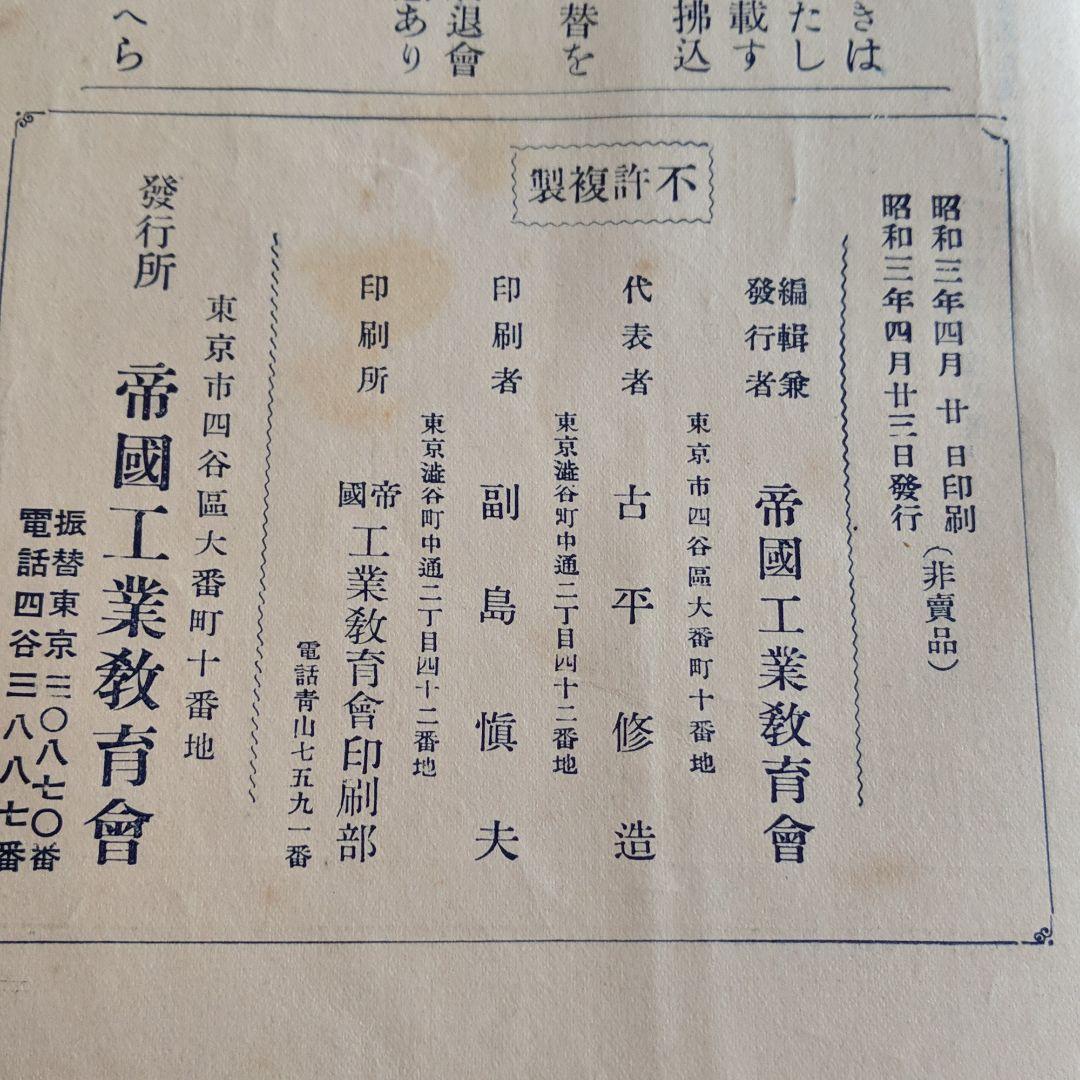 きは
たし
載す
拂込
替を
退會
あり
へら
不許複製
昭和三年四月廿日印刷
昭和三年四月廿三日發行
(非賣品)
編輯兼
發行者
帝國工業敎育會
東京市四谷區大番町十番地
代表者 古平修造
東京澁谷町中通二丁目四十二番地
印刷者 副島愼夫
東京澁谷町中通二丁目四十二番地
印刷所 帝國工業敎育會印刷部
電話靑山七五九一番
東京市四谷區大番町十番地
發行所 帝國工業敎育會
振替東京三〇八七〇番
電話四谷三八八七番